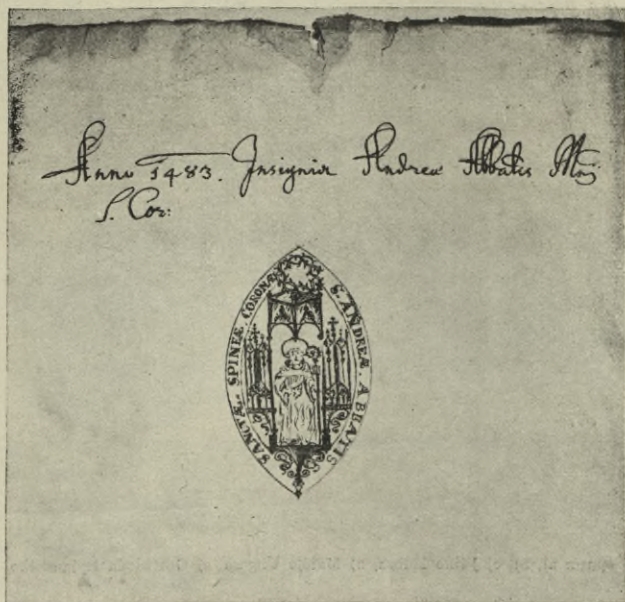 Anno 1483. Insignia Andreæ Abbatis Mrij
S. Cor:
S. ANDREÆ. ABBATIS
SANCTÆ. SPINEÆ CORONÆ